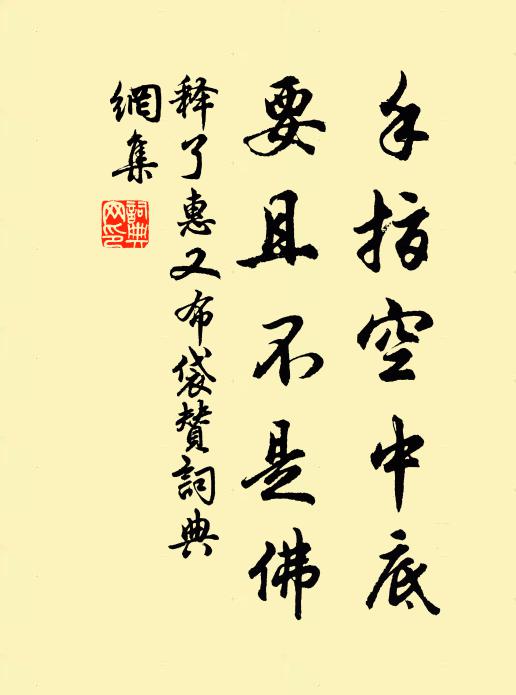 手指空中底
要且不是佛
释了惠又布袋赞詞典
網集
詞典
网印